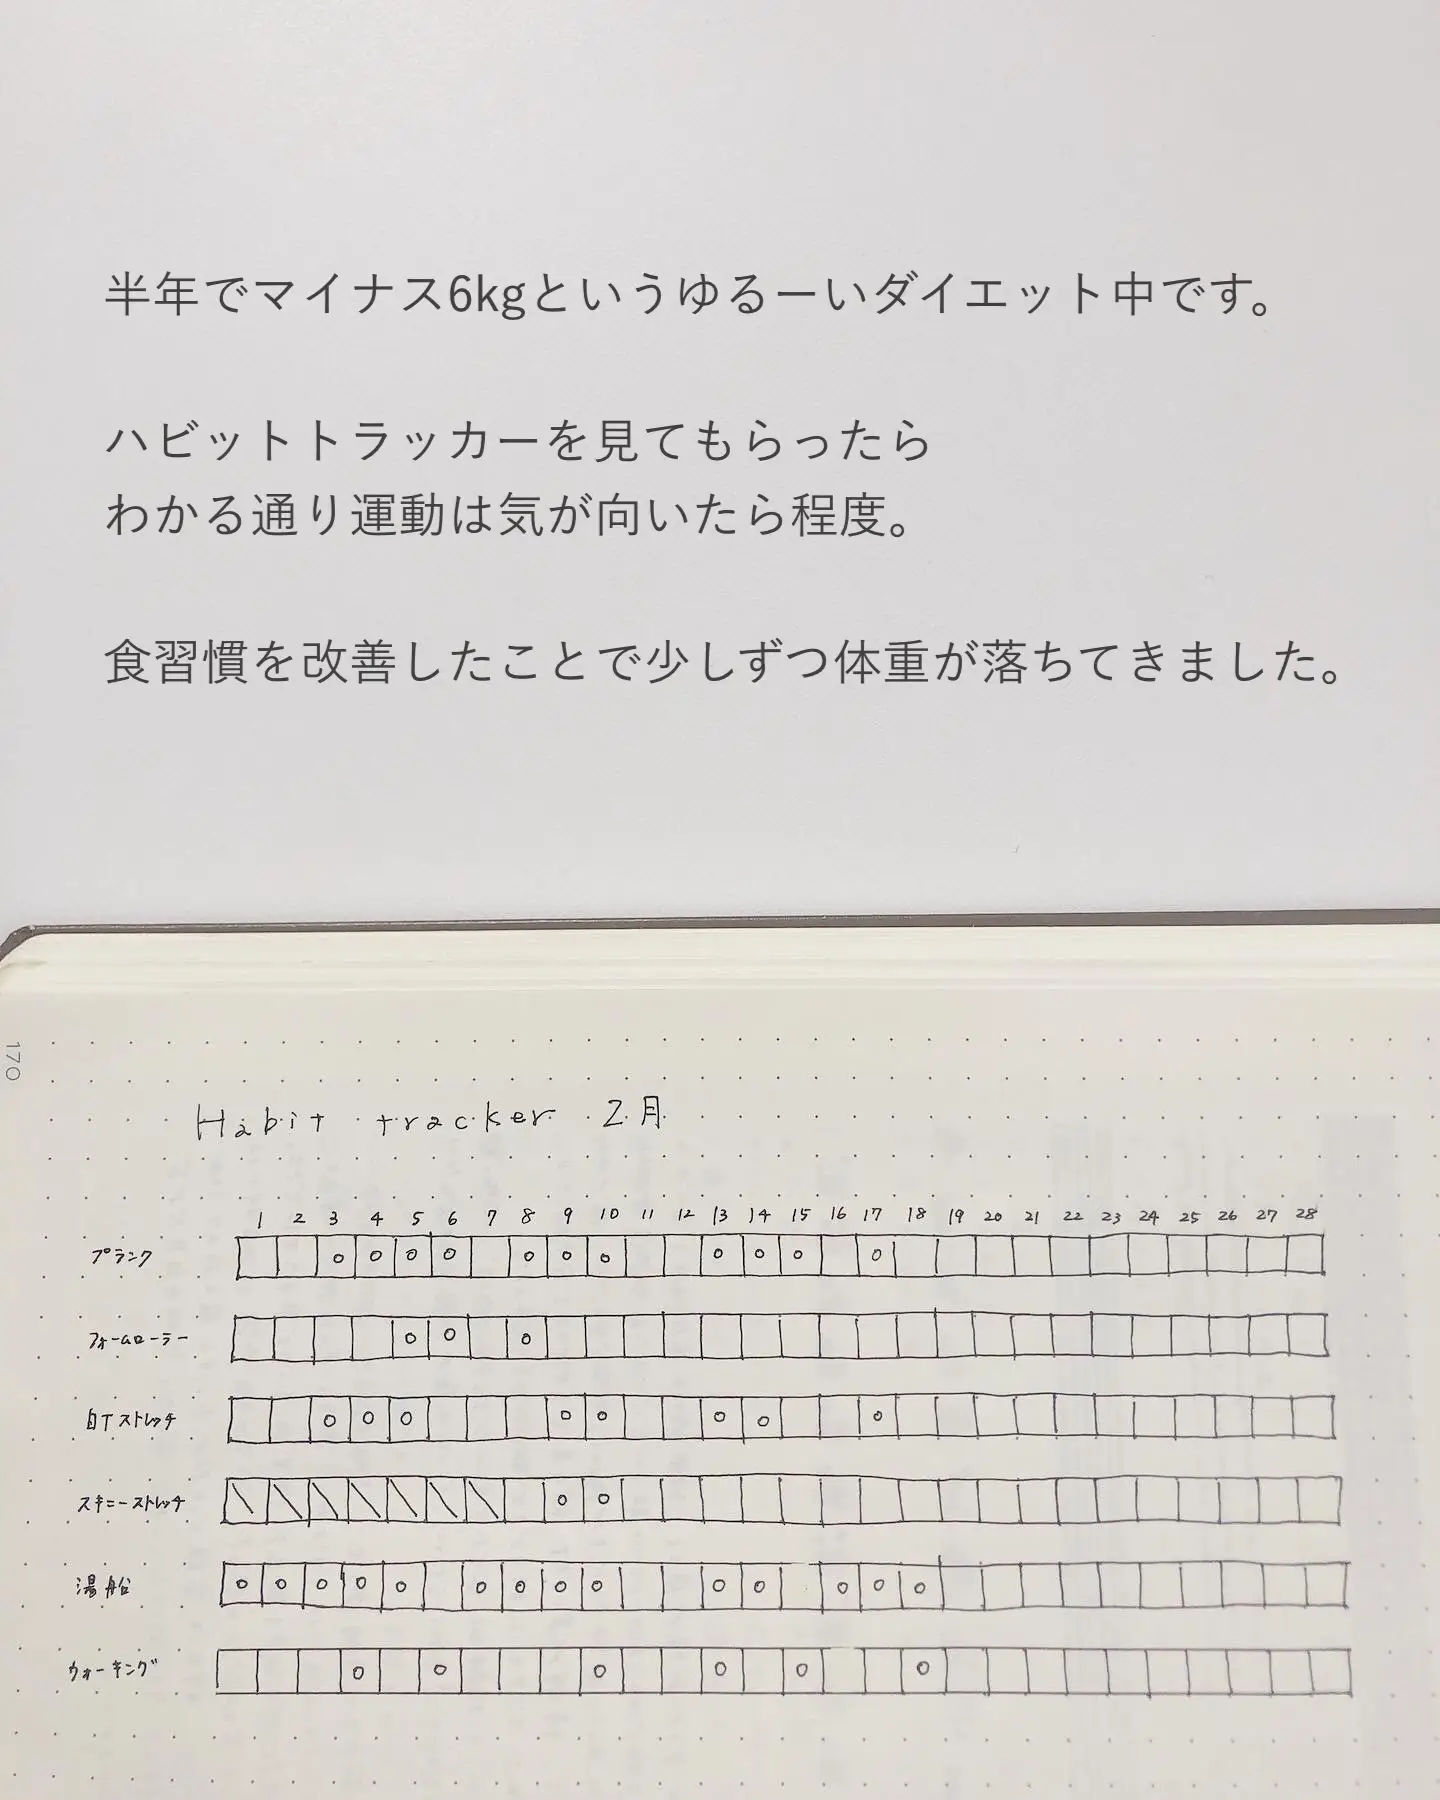 半年でマイナス6kgというゆるーいダイエット中です。
ハビットトラッカーを見てもらったら
わかる通り運動は気が向いたら程度。
食習慣を改善したことで少しずつ体重が落ちてきました。
170
Habit tracker 2月
1 2 3 4 5 6 7 8 9 10 11 12 13 14 15 16 17 18 19 20 21 22 23 24 25 26 27 28
プランク
フォームローラー
ストレッチ
スキニーストレッチ
湯船
ウォーキング